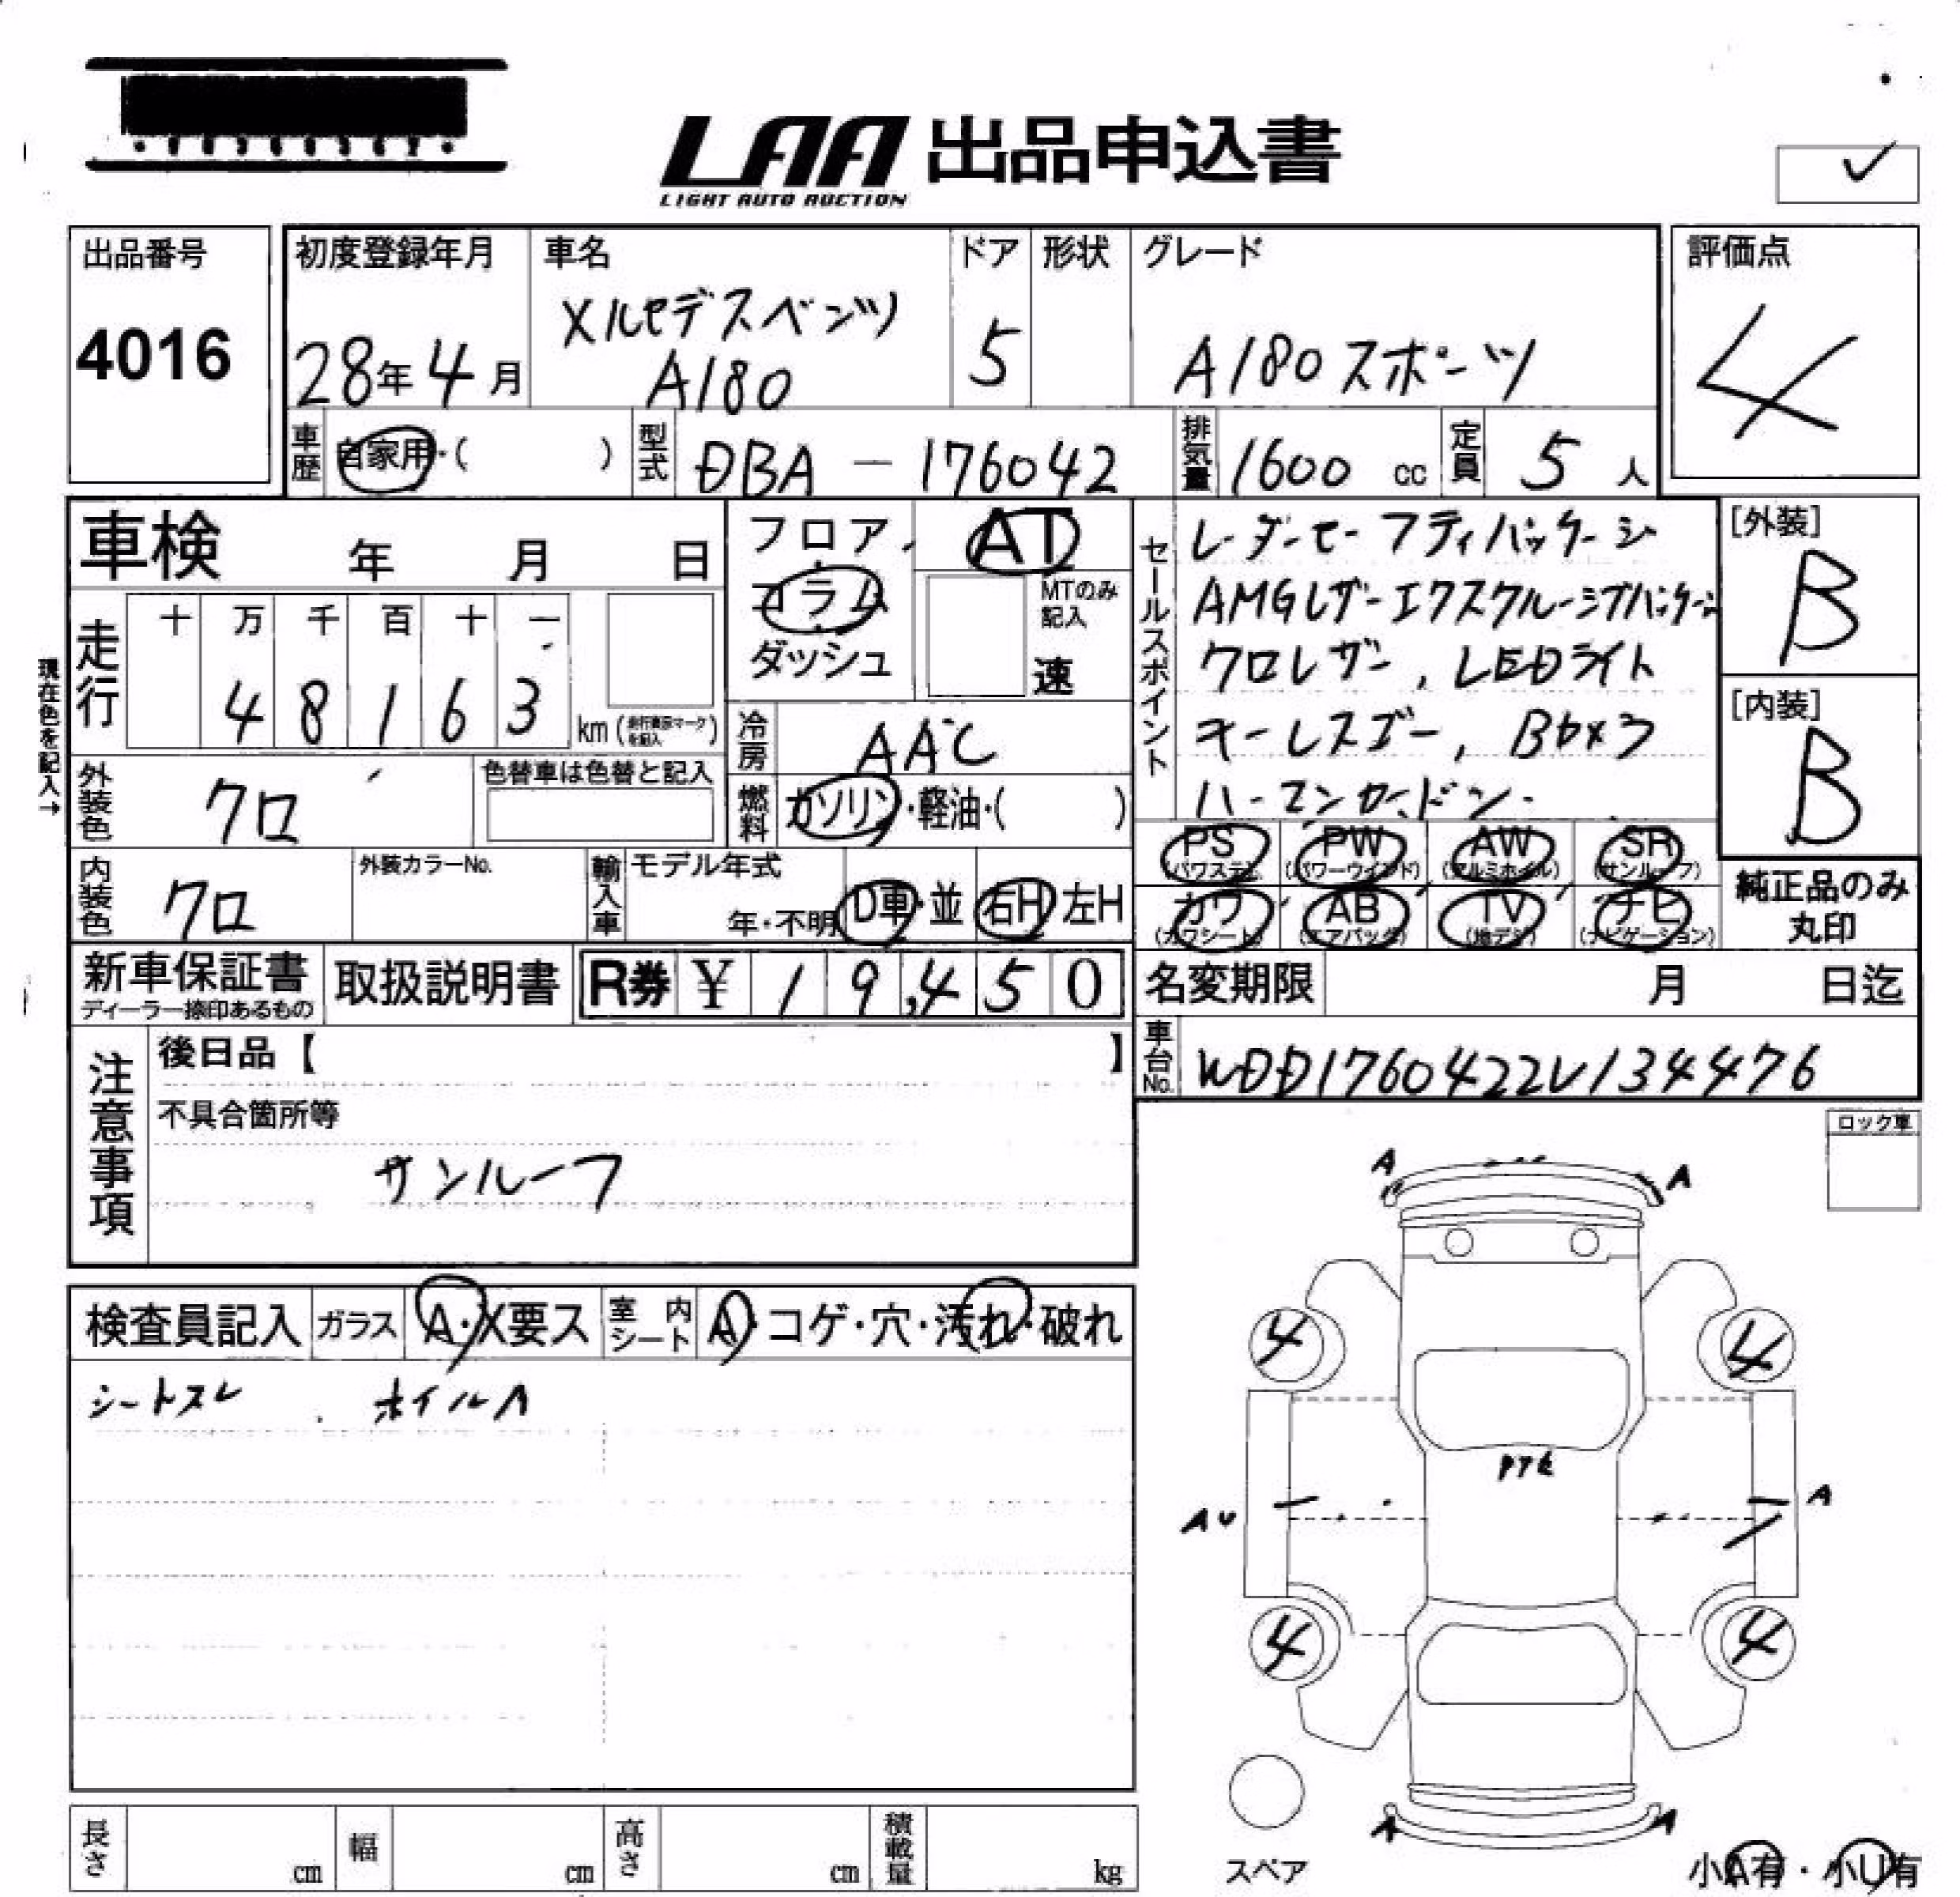 LAA 出品申込書
LIGHT AUTO AUCTION
✓
出品番号
4016
初度登録年月
28年 4月
車名
メルセデスベンツ
A180
ドア
5
形状
グレード
A180 スポーツ
評価点
4
車歴 自家用・( )
型式 DBA - 176042
排気量 1600 cc
定員 5 人
車検 年 月 日
フロア
コラム
ダッシュ
AT
MTのみ記入
速
走行
十 万 千 百 十 一
4 8 1 6 3
km (走行表示マークを記入)
現在色を記入→
冷房 AAC
燃料 ガソリン・軽油・( )
外装色 クロ
色替車は色替と記入
内装色 クロ
外装カラーNo.
輸入車
モデル年式
年・不明
D車・並
右H 左H
セールスポイント
レーダーセーフティパッケージ
AMGレザーエクスクルーシブパッケージ
クロレザー, LEDライト
キーレスゴー,
ハーマンカードン
[外装]
B
[内装]
B
PS (パワステ)
PW (パワーウインド)
AW (アルミホイル)
SR (サンルーフ)
カワ (カワシート)
AB (エアバッグ)
TV (地デジ)
ナビ (ナビゲーション)
純正品のみ丸印
新車保証書
ディーラー捺印あるもの
取扱説明書
R券 ¥ 19,450
名変期限 月 日迄
車台No. WDD1760422V134476
注意事項
後日品【 】
不具合箇所等
サンルーフ
ロック車
検査員記入
ガラス A・X要ス
室内シート A・コゲ・穴・汚れ・破れ
シートスレ . ホイルA
A A
4 4
AU A
4 4
A A
スペア
小A有・小U有
長さ cm
幅 cm
高さ cm
積載量 kg